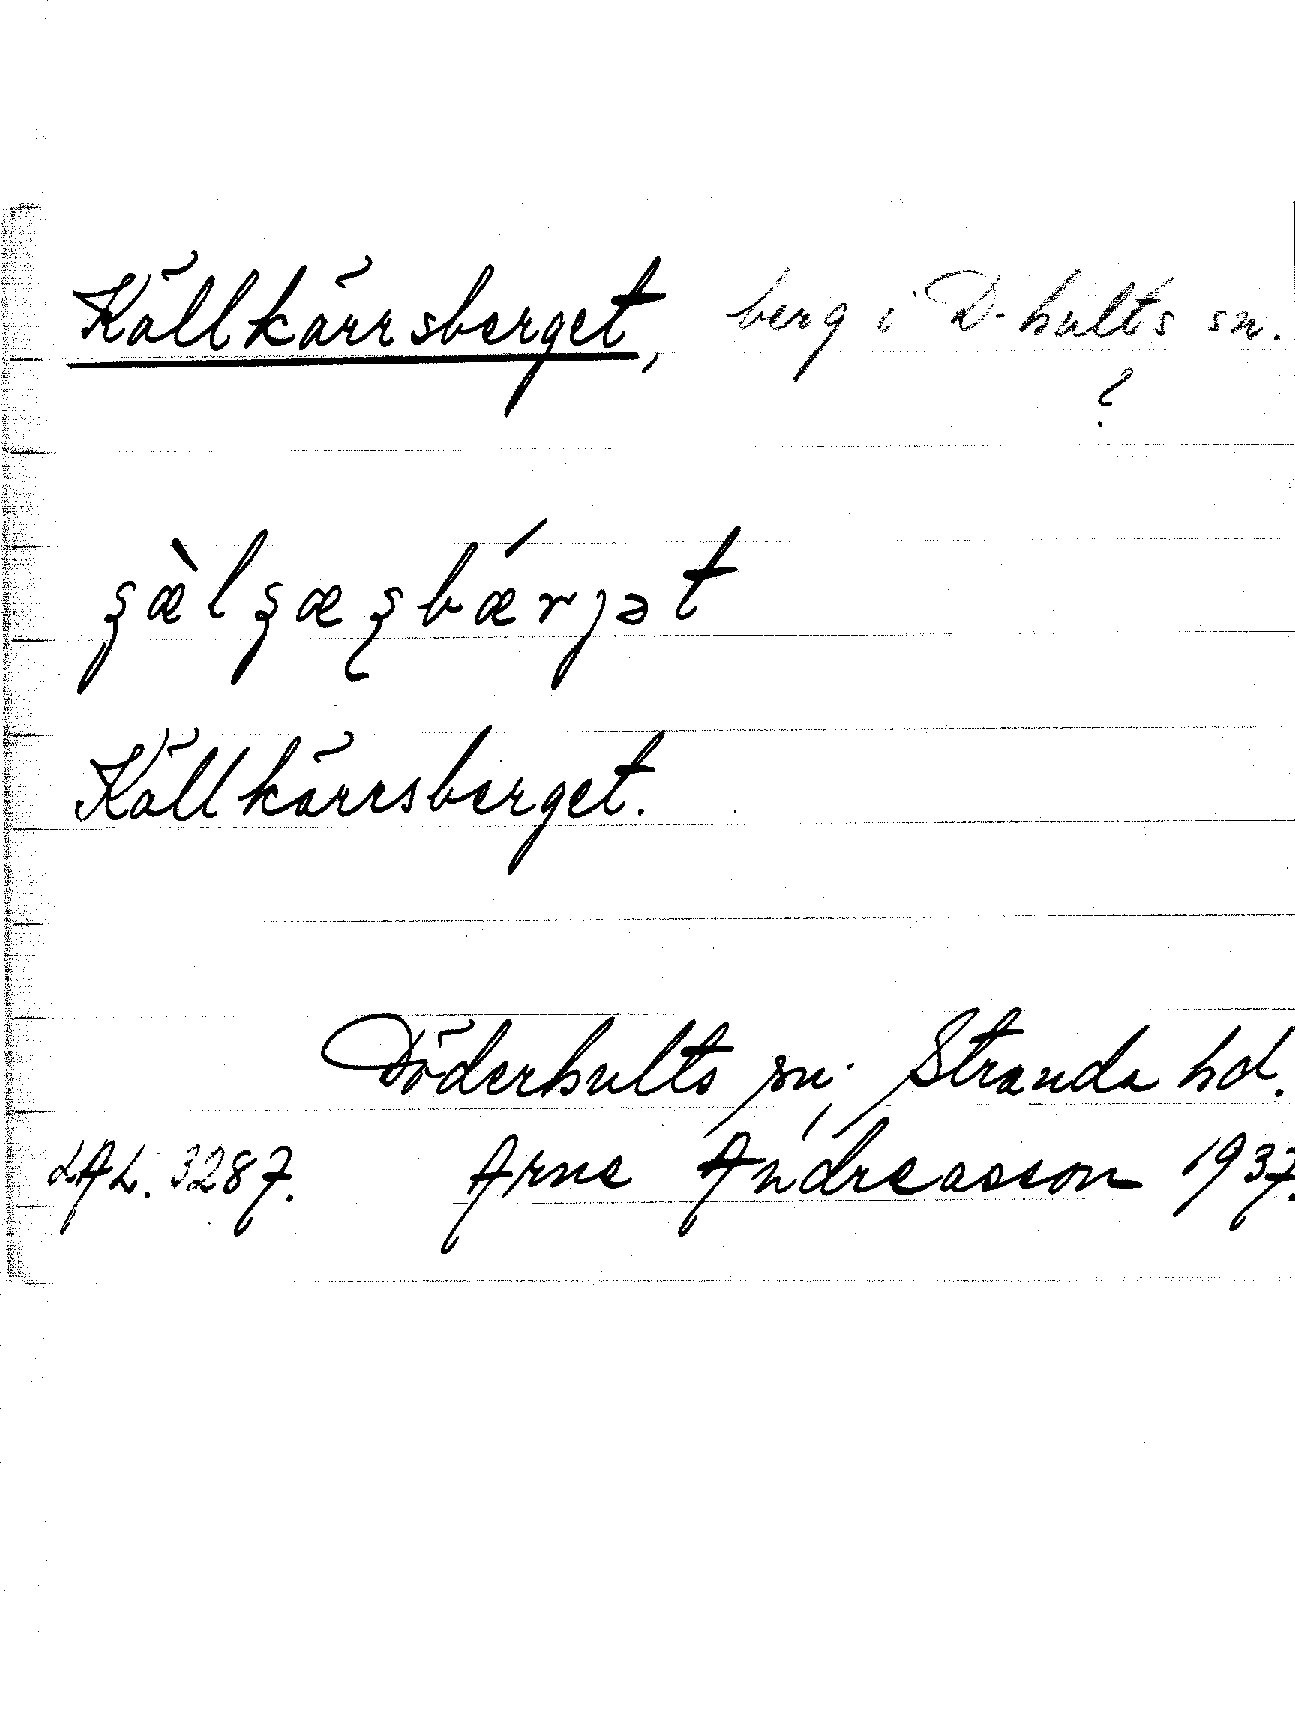 Källkärrsberget, berg i D-hults sn.
?
Källkärrsberget.
Döderhults sn. Stranda hd.
LAL. 3287. Arne Andreasson 1937.